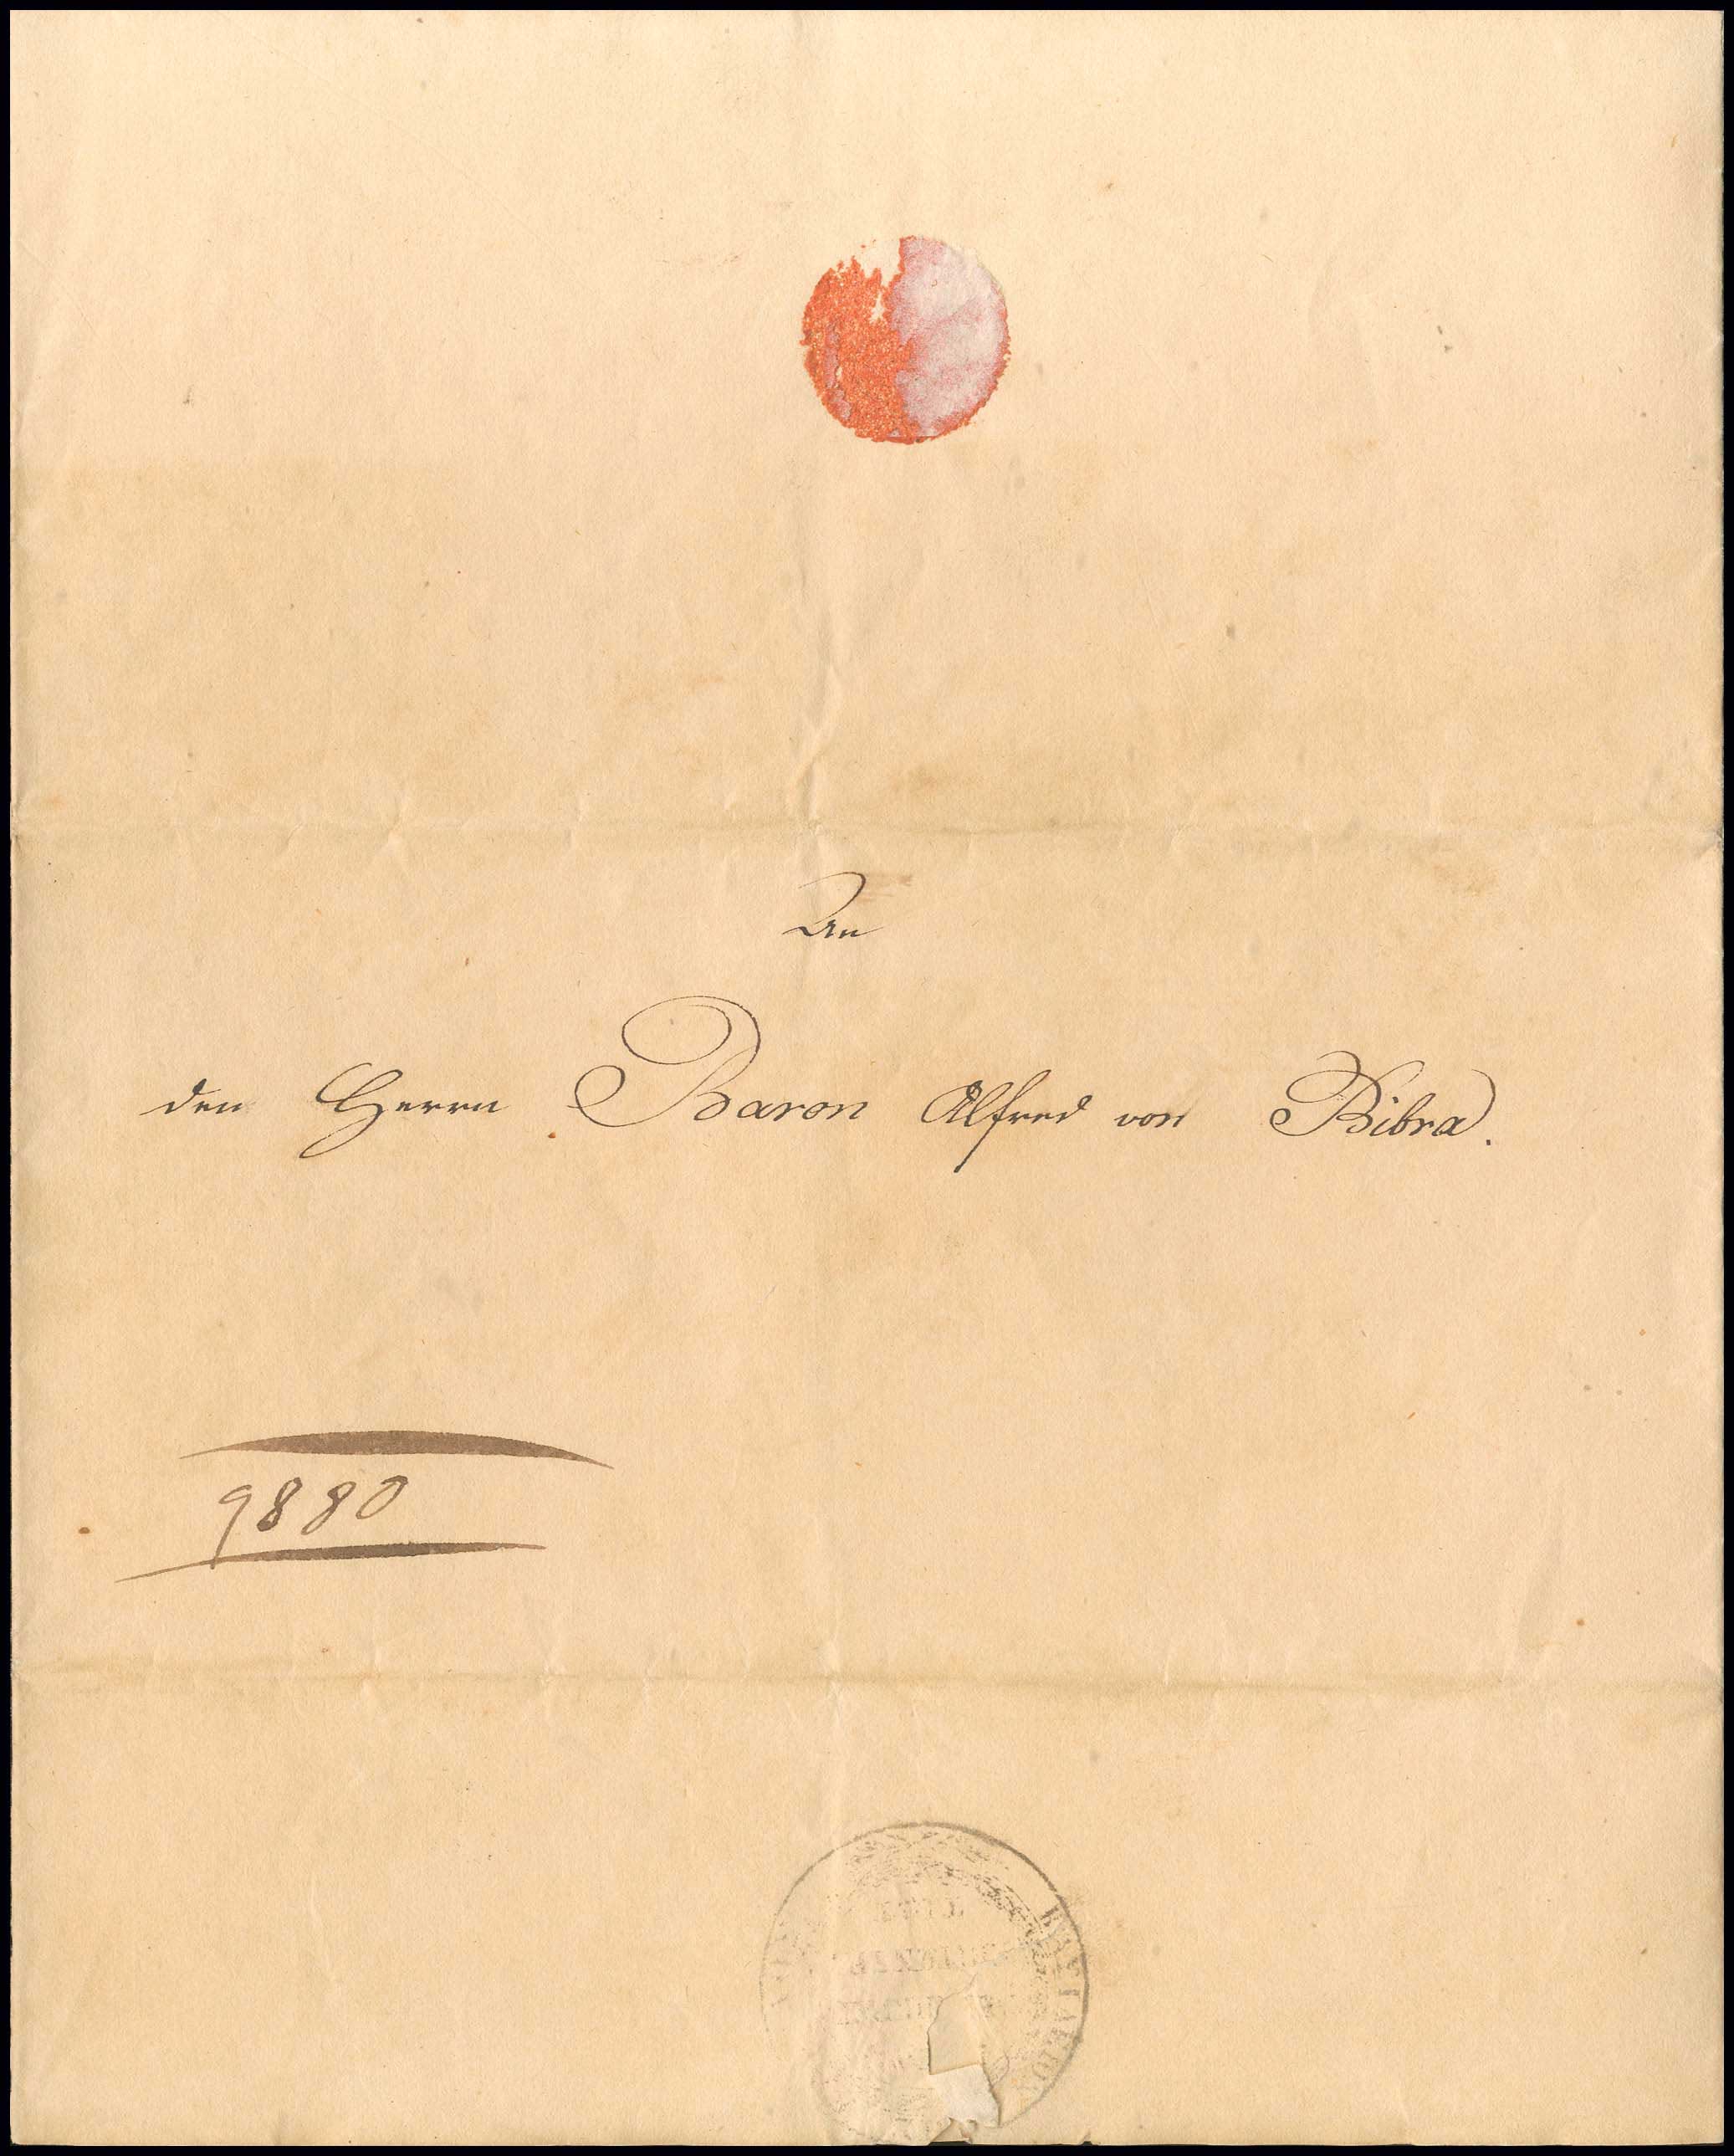 An
den Herrn Baron Alfred von Bibra.
9880